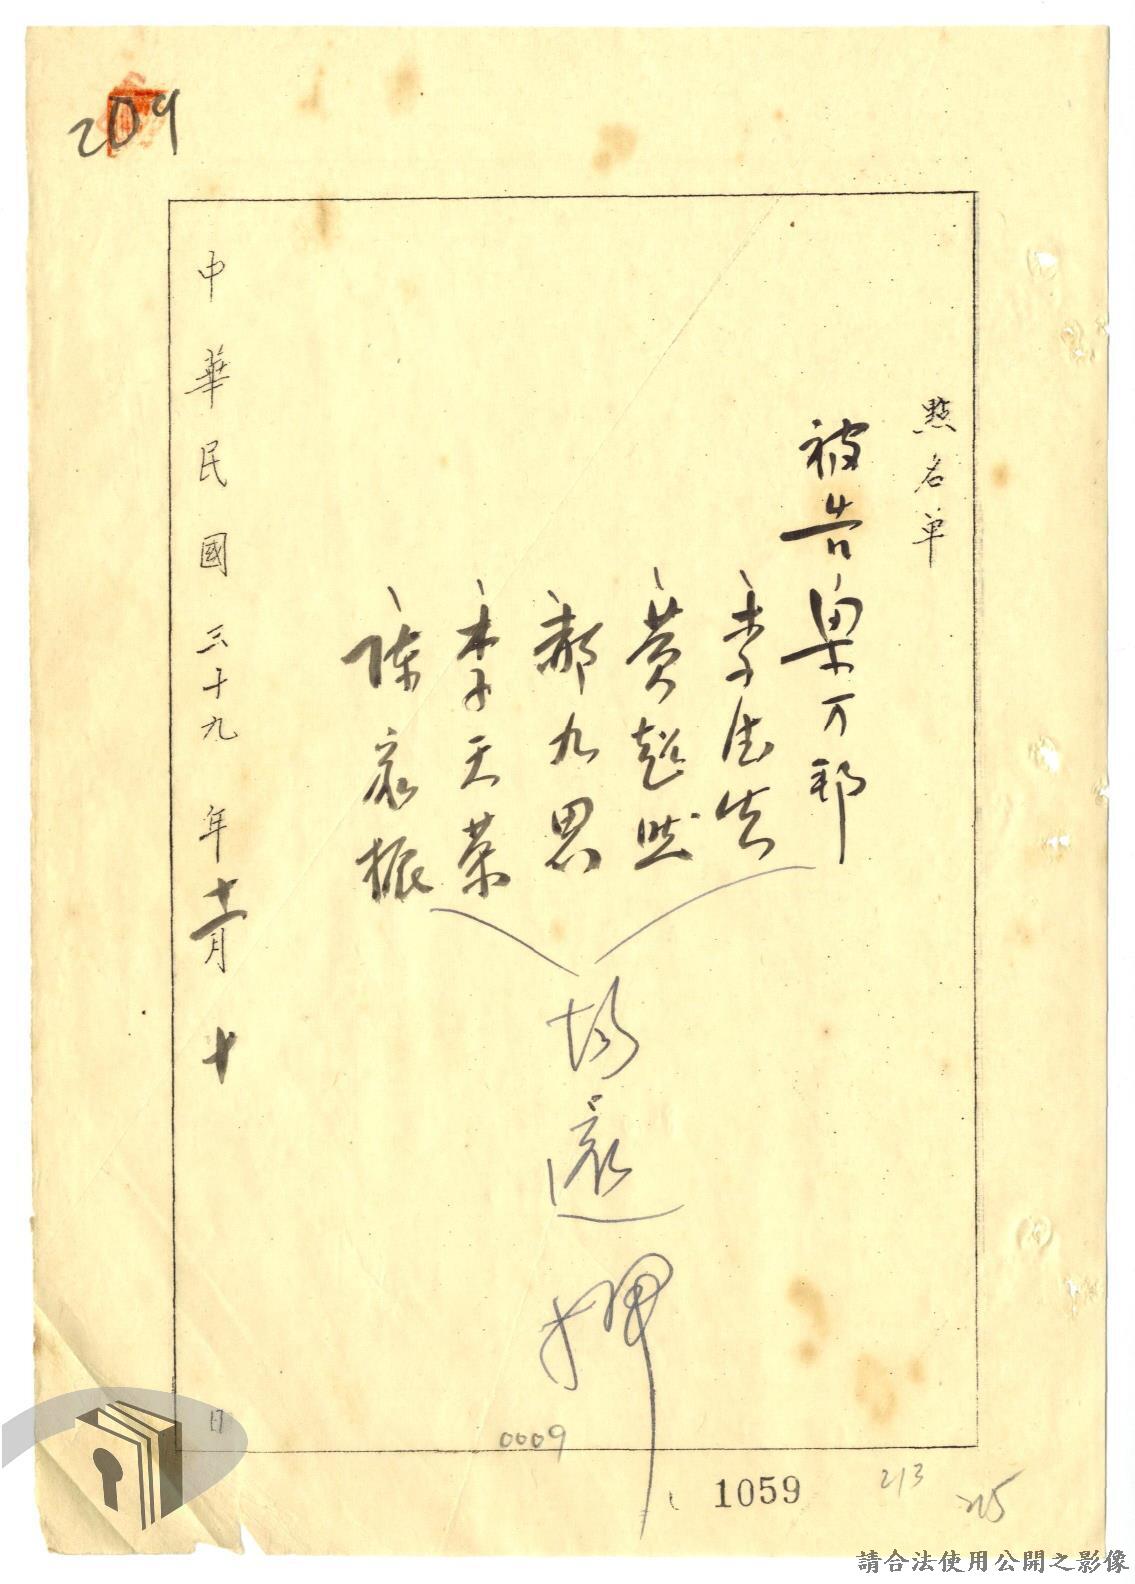 209
點名单
被告畢万邦
李德安
黄超然
郝九思
李天榮
陳永振
均還押
中華民國三十九年十二月十日
0009
1059
213
215
請合法使用公開之影像